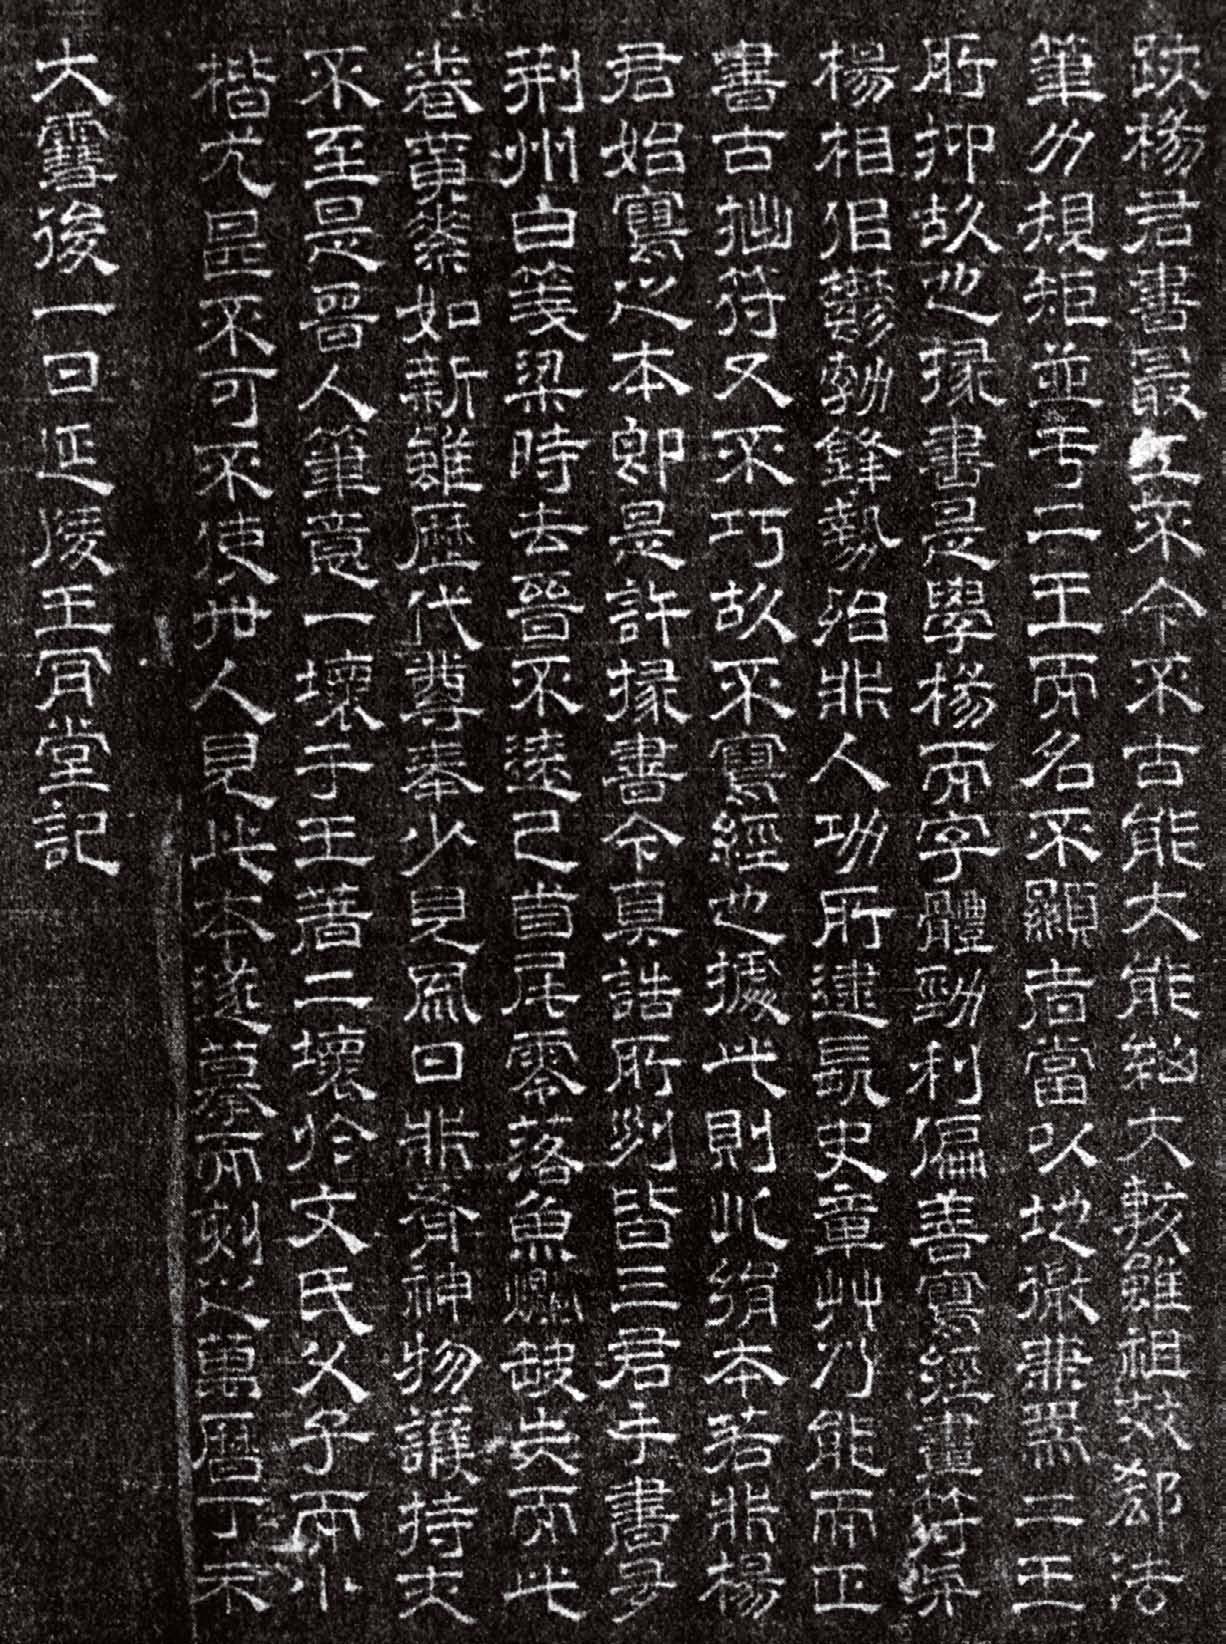 跡楊君書最工不今不古能大能細大較雖祖效郗法
筆力規矩並于二王而名不顯者當以地微兼為二王
所抑故也掾書是學楊而字體勁利偏善寫經畫符與
楊相似鬱勃鋒勢殆非人功所逮長史章艸乃能而正
書古拙符又不巧故不寫經也據此則此絹本若非楊
君始寫之本即是許掾書今真誥所列皆三君手書多
荊州白箋梁時去晉不遠已首尾零落魚爛缺失而此
卷黃素如新雖歷代尊奉少見風日非有神物護持
不至是晉人筆意一壞于王著二壞於文氏父子而小
楷尤甚不可不使世人見此本遂摹而刻之萬曆丁未
大雪後一日延陵王肯堂記